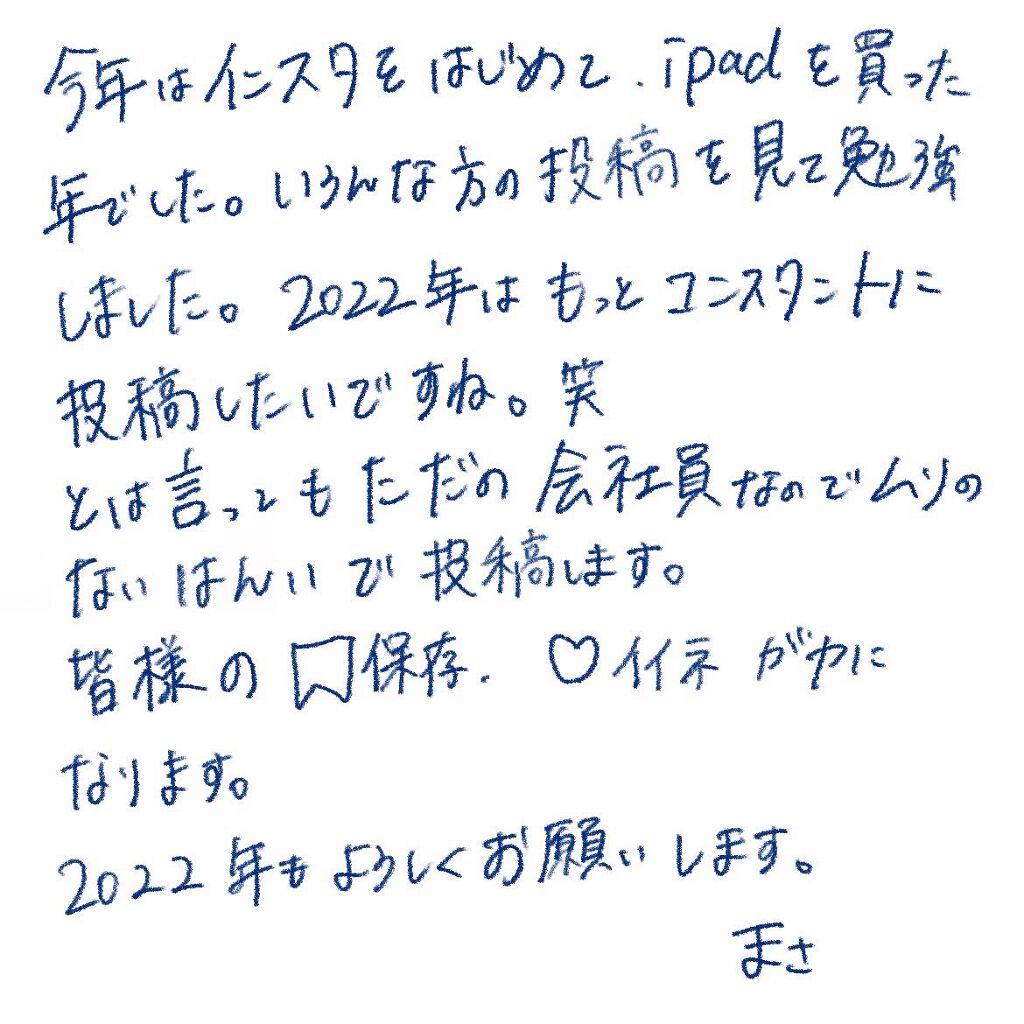 今年はインスタをはじめて、ipadを買った
年でした。いろんな方の投稿を見て勉強
しました。2022年はもっとコンスタントに
投稿したいですね。笑
とは言ってもただの会社員なのでムリの
ないはんいで投稿します。
皆様の保存、♡イイネが力に
なります。
2022年もよろしくお願いします。
まさ